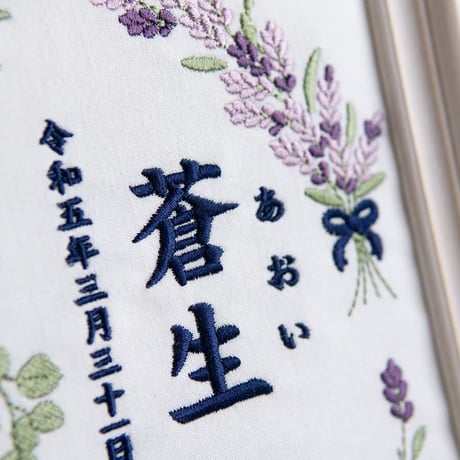 あおい
蒼生
令和五年三月三十一日